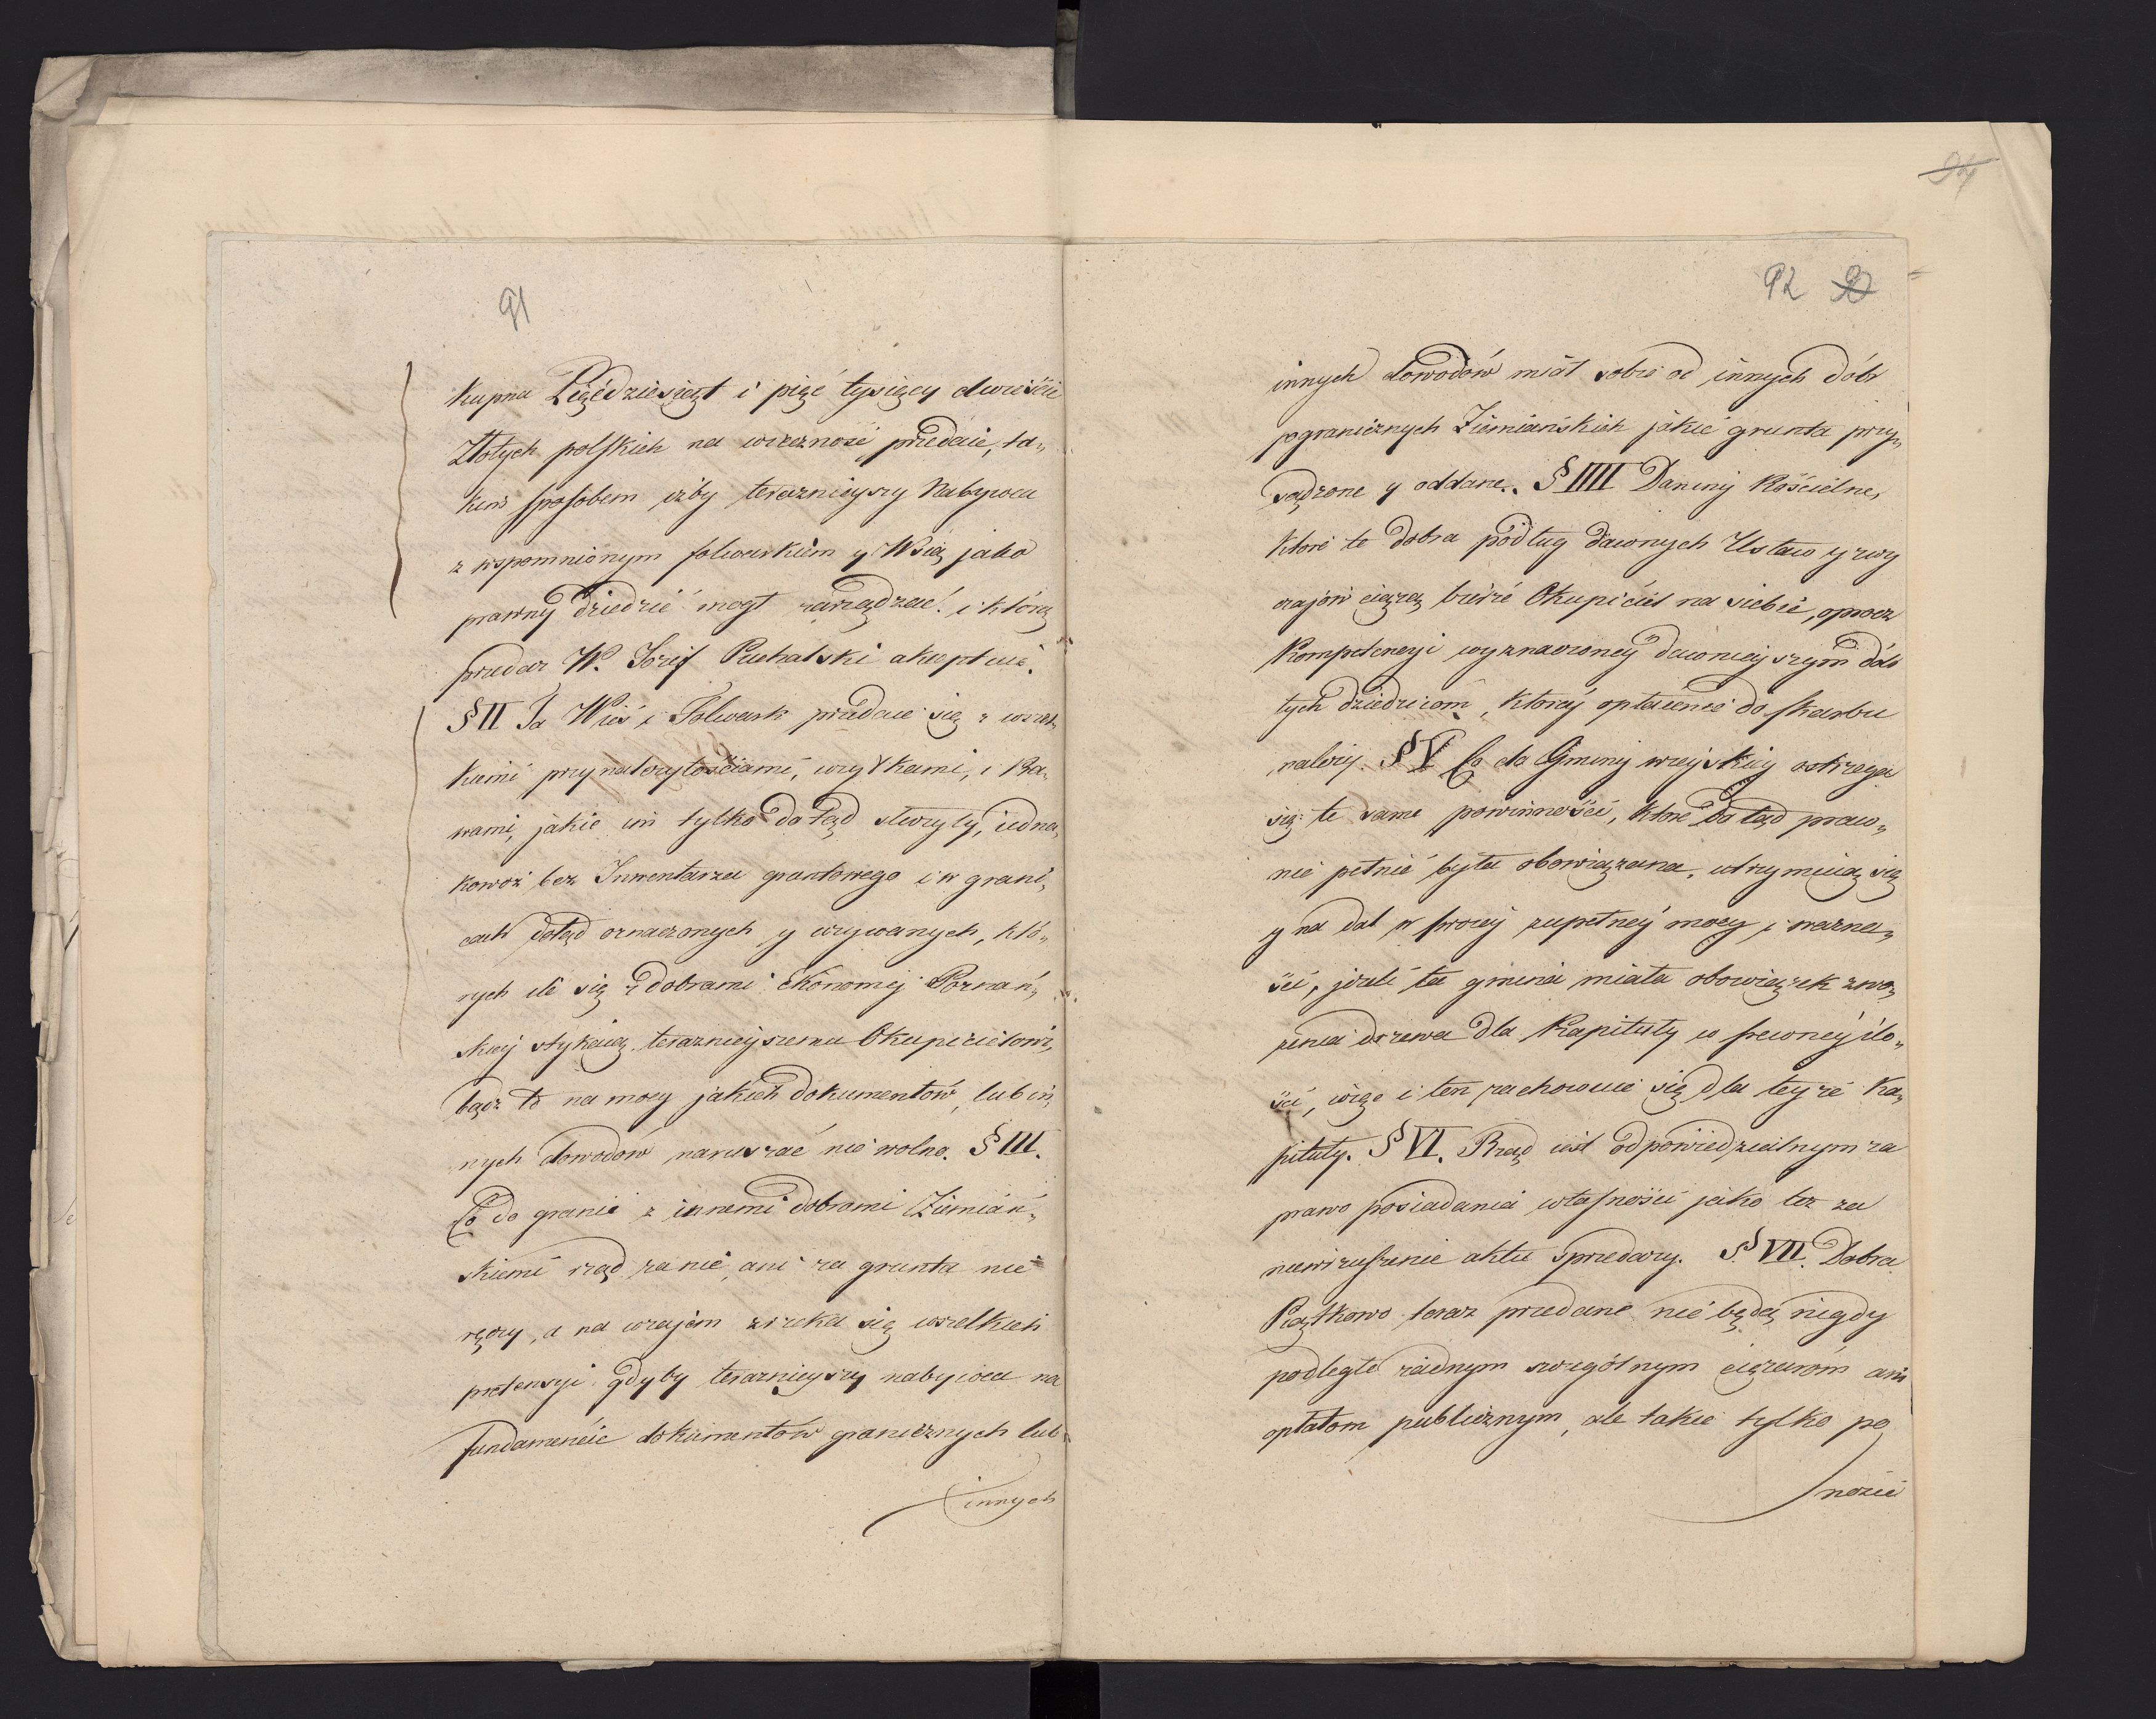 91
Kupna Pięćdziesiąt i pięć tysięcy dwieście
Złotych polskich na wieczność przedaie, ta„
kim sposobem iżby teraznieyszy Nabywca
z wspomnionym folwarkiem y Wsią jako
prawny dziedzic mogł zarządzać. i którą
przedaż W. Jozef Puchalski akceptuie.
§ II Ta Wieś i Folwark przedaie się z wszel„
kiemi przynależytościami, użytkami, i Pra„
wami, jakie im tylko dotąd służyły, iedna„
kowoż bez Inwentarza gruntowego i w grani„
cach dotąd oznaczonych y używanych, któ„
rych ile się z dobrami Ekonomij Poznań„
skiej stykaią, teraznieyszemu Okupicielowi,
bądz to na mocy jakich dokumentów, lub in„
nych dowodów naruszać nie wolno. § III.
Co do granic z innemi dobrami Ziemiań„
skiemi rząd za nie, ani za grunta nie
ręczy, a na wzajem zrzeka się wszelkich
pretensyi gdyby teraznieyszy nabywca na
fundamencie dokumentów granicznych lub
innych
94
92
innych dowodów miał sobie od innych dóbr
pogranicznych Ziemiańskich jakie grunta przy„
sądzone y oddane. § IIII Daniny Kościelne,
Które te dobra podług dawnych Ustaw y zwy
czajów ciążą bierze Okupiciel na siebie, oprocz
Kompetencyi wyznaczoney dawnieyszym dóbr
tych dziedzicom, Którey opłacenie do skarbu
należy. § V Co do Gminy wieyskiey ostrzega
się te same powinności, które dotąd praw„
nie pełnić była obowiązana, utrzymuią się
y na dal w swoiey zupełney mocy i ważno„
ści, jeżeli ta gmina miała obowiązek zwo„
żenia drzewa dla Kapituły w pewney ilo„
ści, więc i ten zachowuie się dla teyże Ka„
pituły. § VI. Rząd iest odpowiedzialnym za
prawo posiadania własności jako też za
niewzruszenie aktu sprzedaży. § VII. Dobra
Piątkowo teraz przedane nie będą nigdy
podległe żadnym szczególnym ciężarom ani
opłatom publicznym, ale takie tylko po
nosić